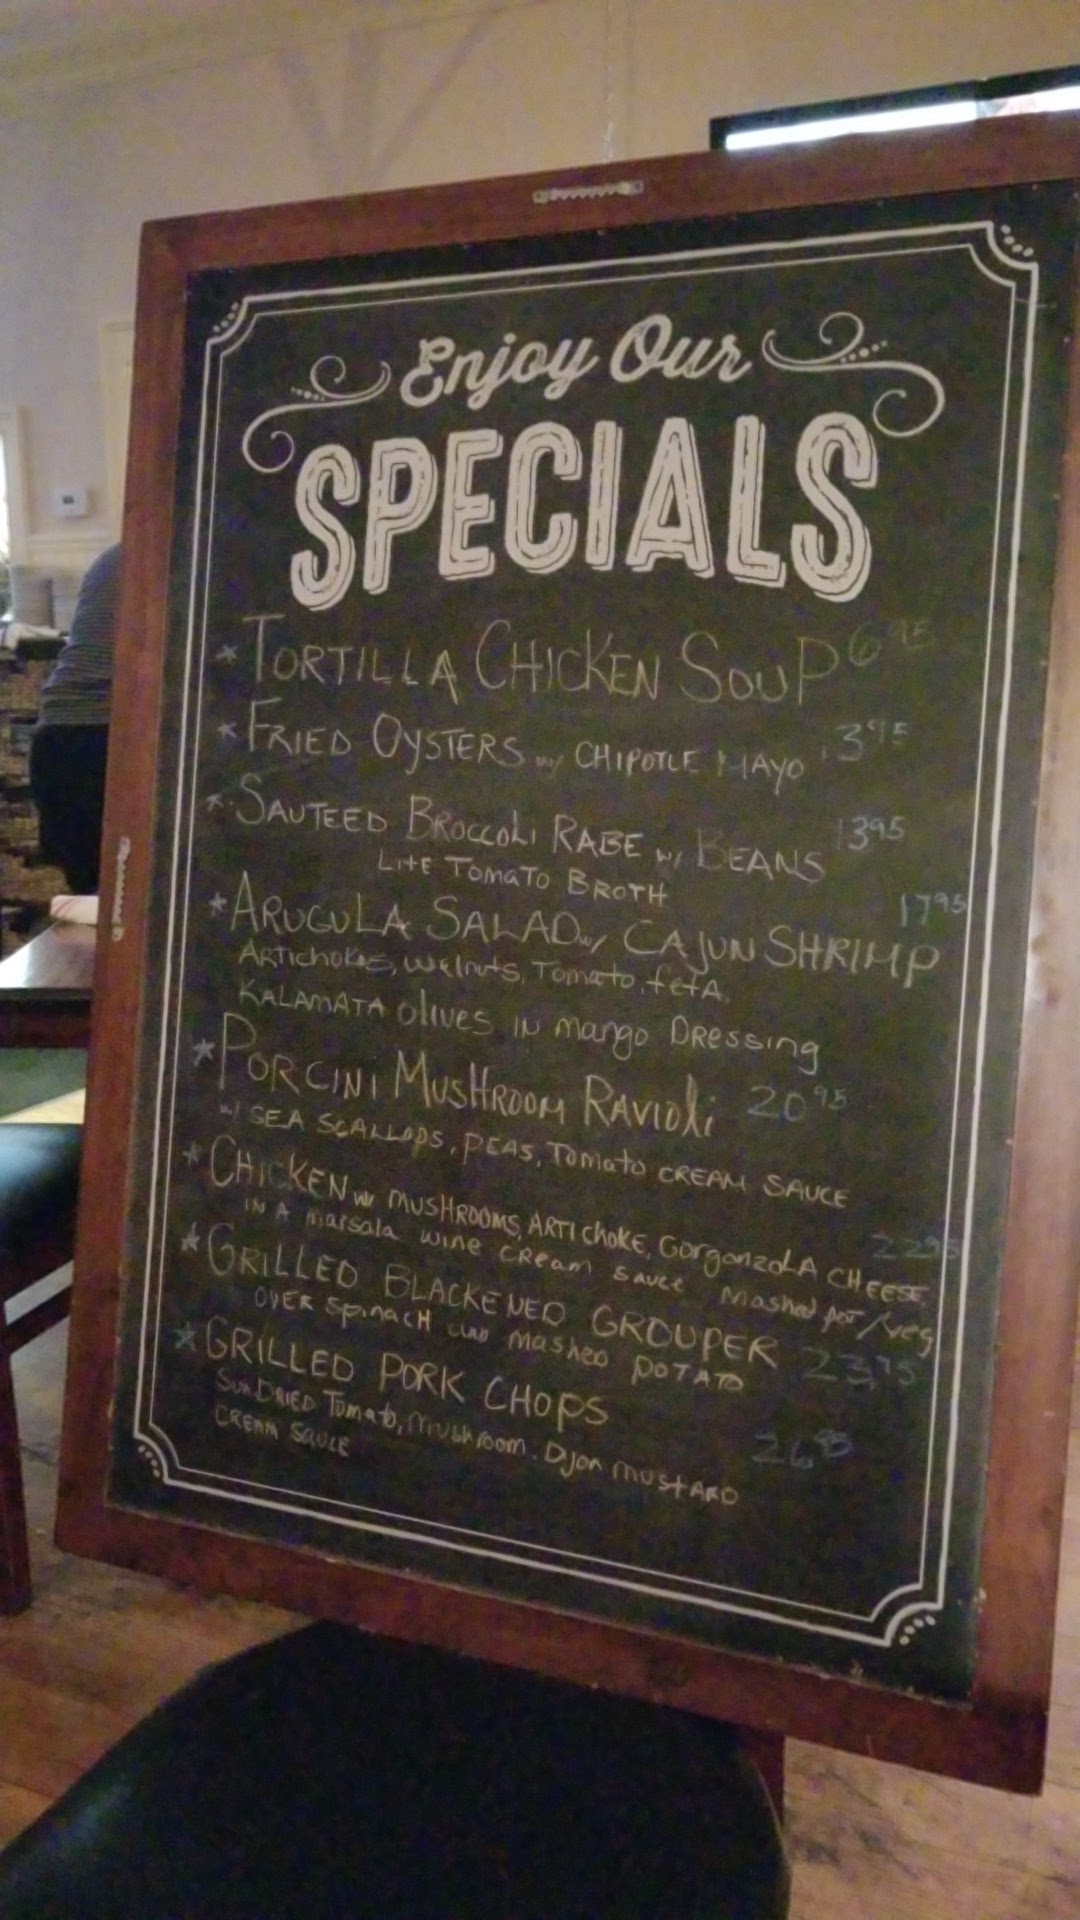 Enjoy Our
SPECIALS
* TORTILLA CHICKEN SOUP 6 95
* FRIED OYSTERS w/ CHIPOTLE MAYO 13 95
* SAUTEED BROCCOLI RABE w/ BEANS 13 95
LITE TOMATO BROTH
* ARUGULA SALAD w/ CAJUN SHRIMP 17 95
ARTICHOKES, WALNUTS, TOMATO, FETA,
KALAMATA OLIVES IN MANGO DRESSING
* PORCINI MUSHROOM RAVIOLI 20 95
w/ SEA SCALLOPS, PEAS, TOMATO CREAM SAUCE
* CHICKEN w/ MUSHROOMS, ARTICHOKE, GORGONZOLA CHEESE, 22 95
IN A MARSALA WINE CREAM SAUCE MASHED POT/VEG
* GRILLED BLACKENED GROUPER 23,95
OVER SPINACH AND MASHED POTATO
* GRILLED PORK CHOPS 26 95
SUNDRIED TOMATO, MUSHROOM. DIJON MUSTARD
CREAM SAUCE